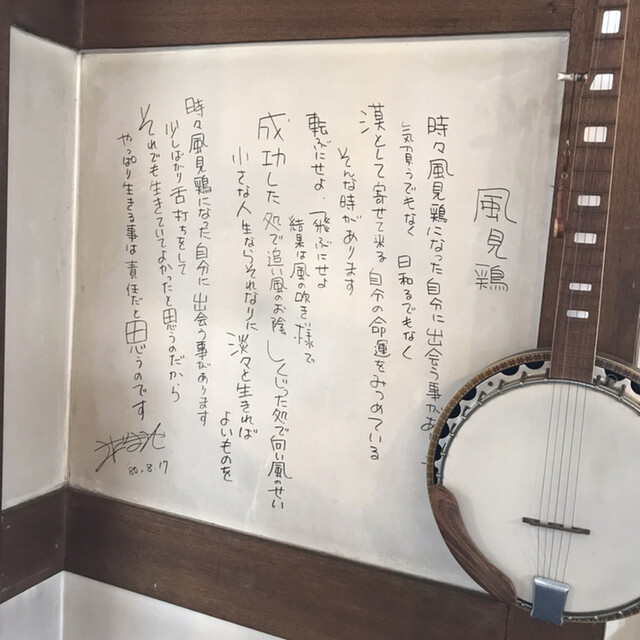 風見鶏
時々風見鶏になった自分に出会う事があ
気負うでもなく 日和るでもなく
漠として寄せて来る 自分の命運をみつめている
そんな時があります
転ぶにせよ、飛ぶにせよ
結果は風の吹き様で
成功した処で追い風のお陰 しくじった処で向い風のせい
小さな人生ならそれなりに 淡々と生きれば
よいものを
時々風見鶏になった自分に出会う事があります
少しばかり舌打ちをして
それでも生きていてよかったと思うのだから
やっぱり生きる事は責任だと思うのです
80.8.17